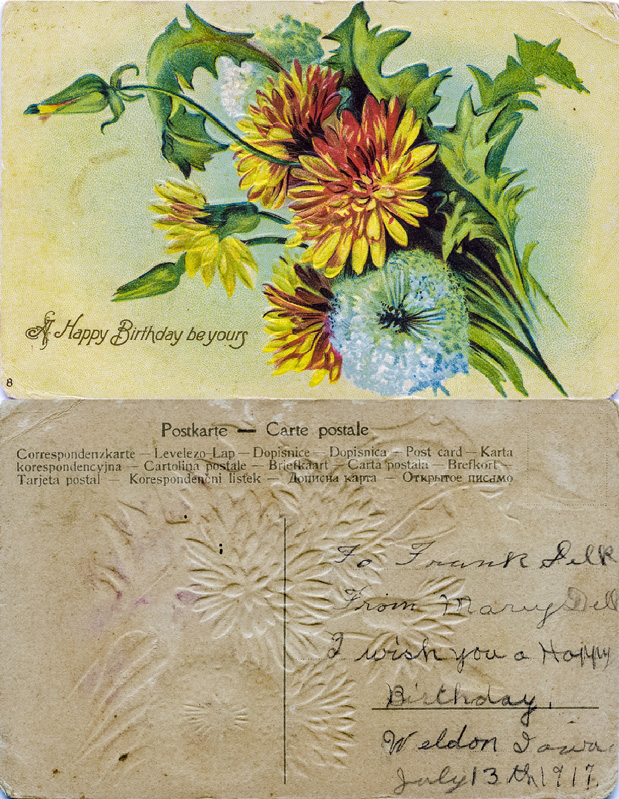 A Happy Birthday be yours
8
Postkarte — Carte postale
Correspondenzkarte — Levelezo Lap — Dopisnice — Dopisnica — Post card — Karta
korespondencyjna — Cartolina postale — Briefkaart — Carta postala — Brefkort —
Tarjeta postal — Korespondencni listek — Дописна карта — Открытое писамо
To Frank Delk
From Mary Delk
I wish you a Happy
Birthday.
Weldon Iowa
July 13th 1917.